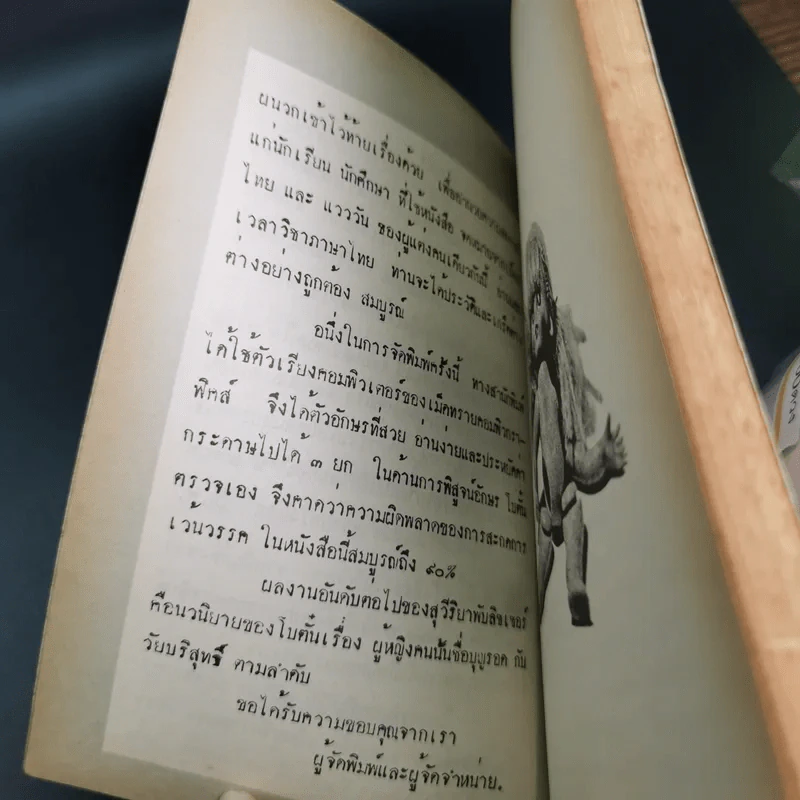 ผนวกเข้าไว้ท้ายเรื่องด้วย เพื่ออำนวยความสะดวก
แก่นักเรียน นักศึกษา ที่ใช้หนังสือ จดหมายจากเมือง
ไทย และ แวววัน ของผู้แต่งคนเดียวกันนี้
เวลาวิชาภาษาไทย ท่านจะได้ประวัติและเกร็ดต่าง
ต่างอย่างถูกต้อง สมบูรณ์
อนึ่งในการจัดพิมพ์ครั้งนี้ ทางสำนักพิมพ์
ได้ใช้ตัวเรียงคอมพิวเตอร์ของเม็ดทรายคอมพิวกรา—
ฟิคส์ จึงได้ตัวอักษรที่สวย อ่านง่ายและประหยัดค่า
กระดาษไปได้ ๓ ยก ในด้านการพิสูจน์อักษร โบตั๋น
ตรวจเอง จึงคาดว่าความผิดพลาดของการสะกดการ
เว้นวรรค ในหนังสือนี้สมบูรณ์ถึง ๙๐%
ผลงานอันดับต่อไปของสุวีริยาพับลิชเชอร์
คือนวนิยายของโบตั๋นเรื่อง ผู้หญิงคนนั้นชื่อบุญรอด กับ
วัยบริสุทธิ์ ตามลำดับ
ขอได้รับความขอบคุณจากเรา
ผู้จัดพิมพ์และผู้จัดจำหน่าย.